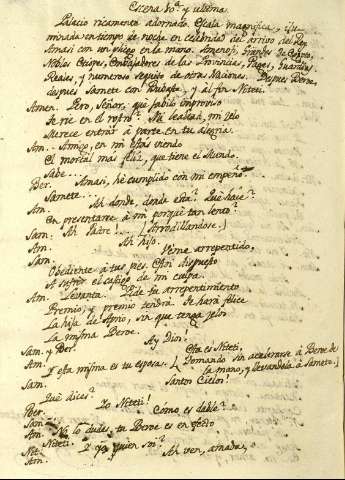 Escena 10.ª y ultima.
Palacio ricamente adornado. Escala magnifica, ilu-
minada en tiempo de noche en celebridad del arrivo del Rey.
Amasi con un pliego en la mano. Amenofi, Grandes de Egipto,
Nobles Etiopes, Embajadores de las Provincias, Pages, Guardias
Reales, y numeroso seguito de otras Naciones. Despues Beroe,
despues Samete con Bubaste, y al fin Niteti.
Amen. Pero, Señor, que jubilo improviso
Se rie en el rostro? Mi lealtad, mi zelo
Merece entrar á parte en tu alegria.
Am... Amigo, en mi estás viendo
El mortal mas feliz, que tiene el Mundo.
Sabe...
Ber. Amasi, hé cumplido con mi empeño.
Samete...
Am. Ah donde, donde está? Qué hace?
En presentarse á mi porqué tan lento?
Sam. Ah Padre!... (Arrodillandose.)
Am. Ah hijo.
Sam. Véme arrepentido,
Obediente á tus pies. Aqui dispuesto
A sufrir el castigo de mi culpa.
Am. Levanta. Pide tu arrepentimiento
Premio; y premio tendrá. Te hará felice
La hija de Aprio, sin que tenga zelos
La misma Beroe.
Sam. y Ber. Ay Dios!
Am. Esta es Niteti,
Y esta misma es tu esposa. (Tomando sin acelerarse á Beroe de
la mano, y llevandola á Samete.)
Sam. Santos Cielos!
Qué dices?
Ber. Yo Niteti!
Sam. Como es dable?
Am. No lo dudes, tu Beroe es en efecto
Niteti.
Nit. Y yo quien soi?
Am. Ah ven, amada,